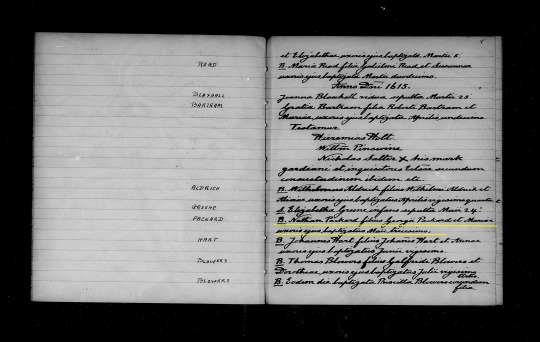 et Elizabethae uxoris ejus baptizata Martii 5.
READ
B. Maria Read filia Guliolme Read et Susannae
uxoris ejus baptizata Martii duodecimo.
Anno Dni 1615.
BLEXHALL
Joanna Bloxhell vidua sepulta Martii 25.
BARTRAM
Ignatia Bartram filia Roberti Bartram et
Mariae, uxoris ejus baptizata Aprilis undecimo
Testamur
Hieremias Holt.
Willm Pinswine
Nicholas Salter X his mark
gardiani et inquisitores Ecliae secundum
consuetudinem ibidem etc.
ALDRICH
B. Wilhelmus Aldrich filius Wilhelmi Aldrich et
uxoris ejus baptizatus Aprilis
GREENE
S. Elizabetha Greene infans sepulta Maii 24.
PACKARD
B. Nathan Packard filius Georgii Packard et Mariae
uxoris ejus baptizatus Maii tricesimo.
HART
B. Johannes Hart filius Johanis Hart et Annae
uxoris ejus baptizatus Junii vigesimo.
BLOWERS
B. Thomas Blowers filius Galfridi Blowers et
Dorotheae, uxoris ejus baptizatus Julii vigesimo
BLOWERS
B. Eodem die baptizata Priscilla Blowers eorundem
filia